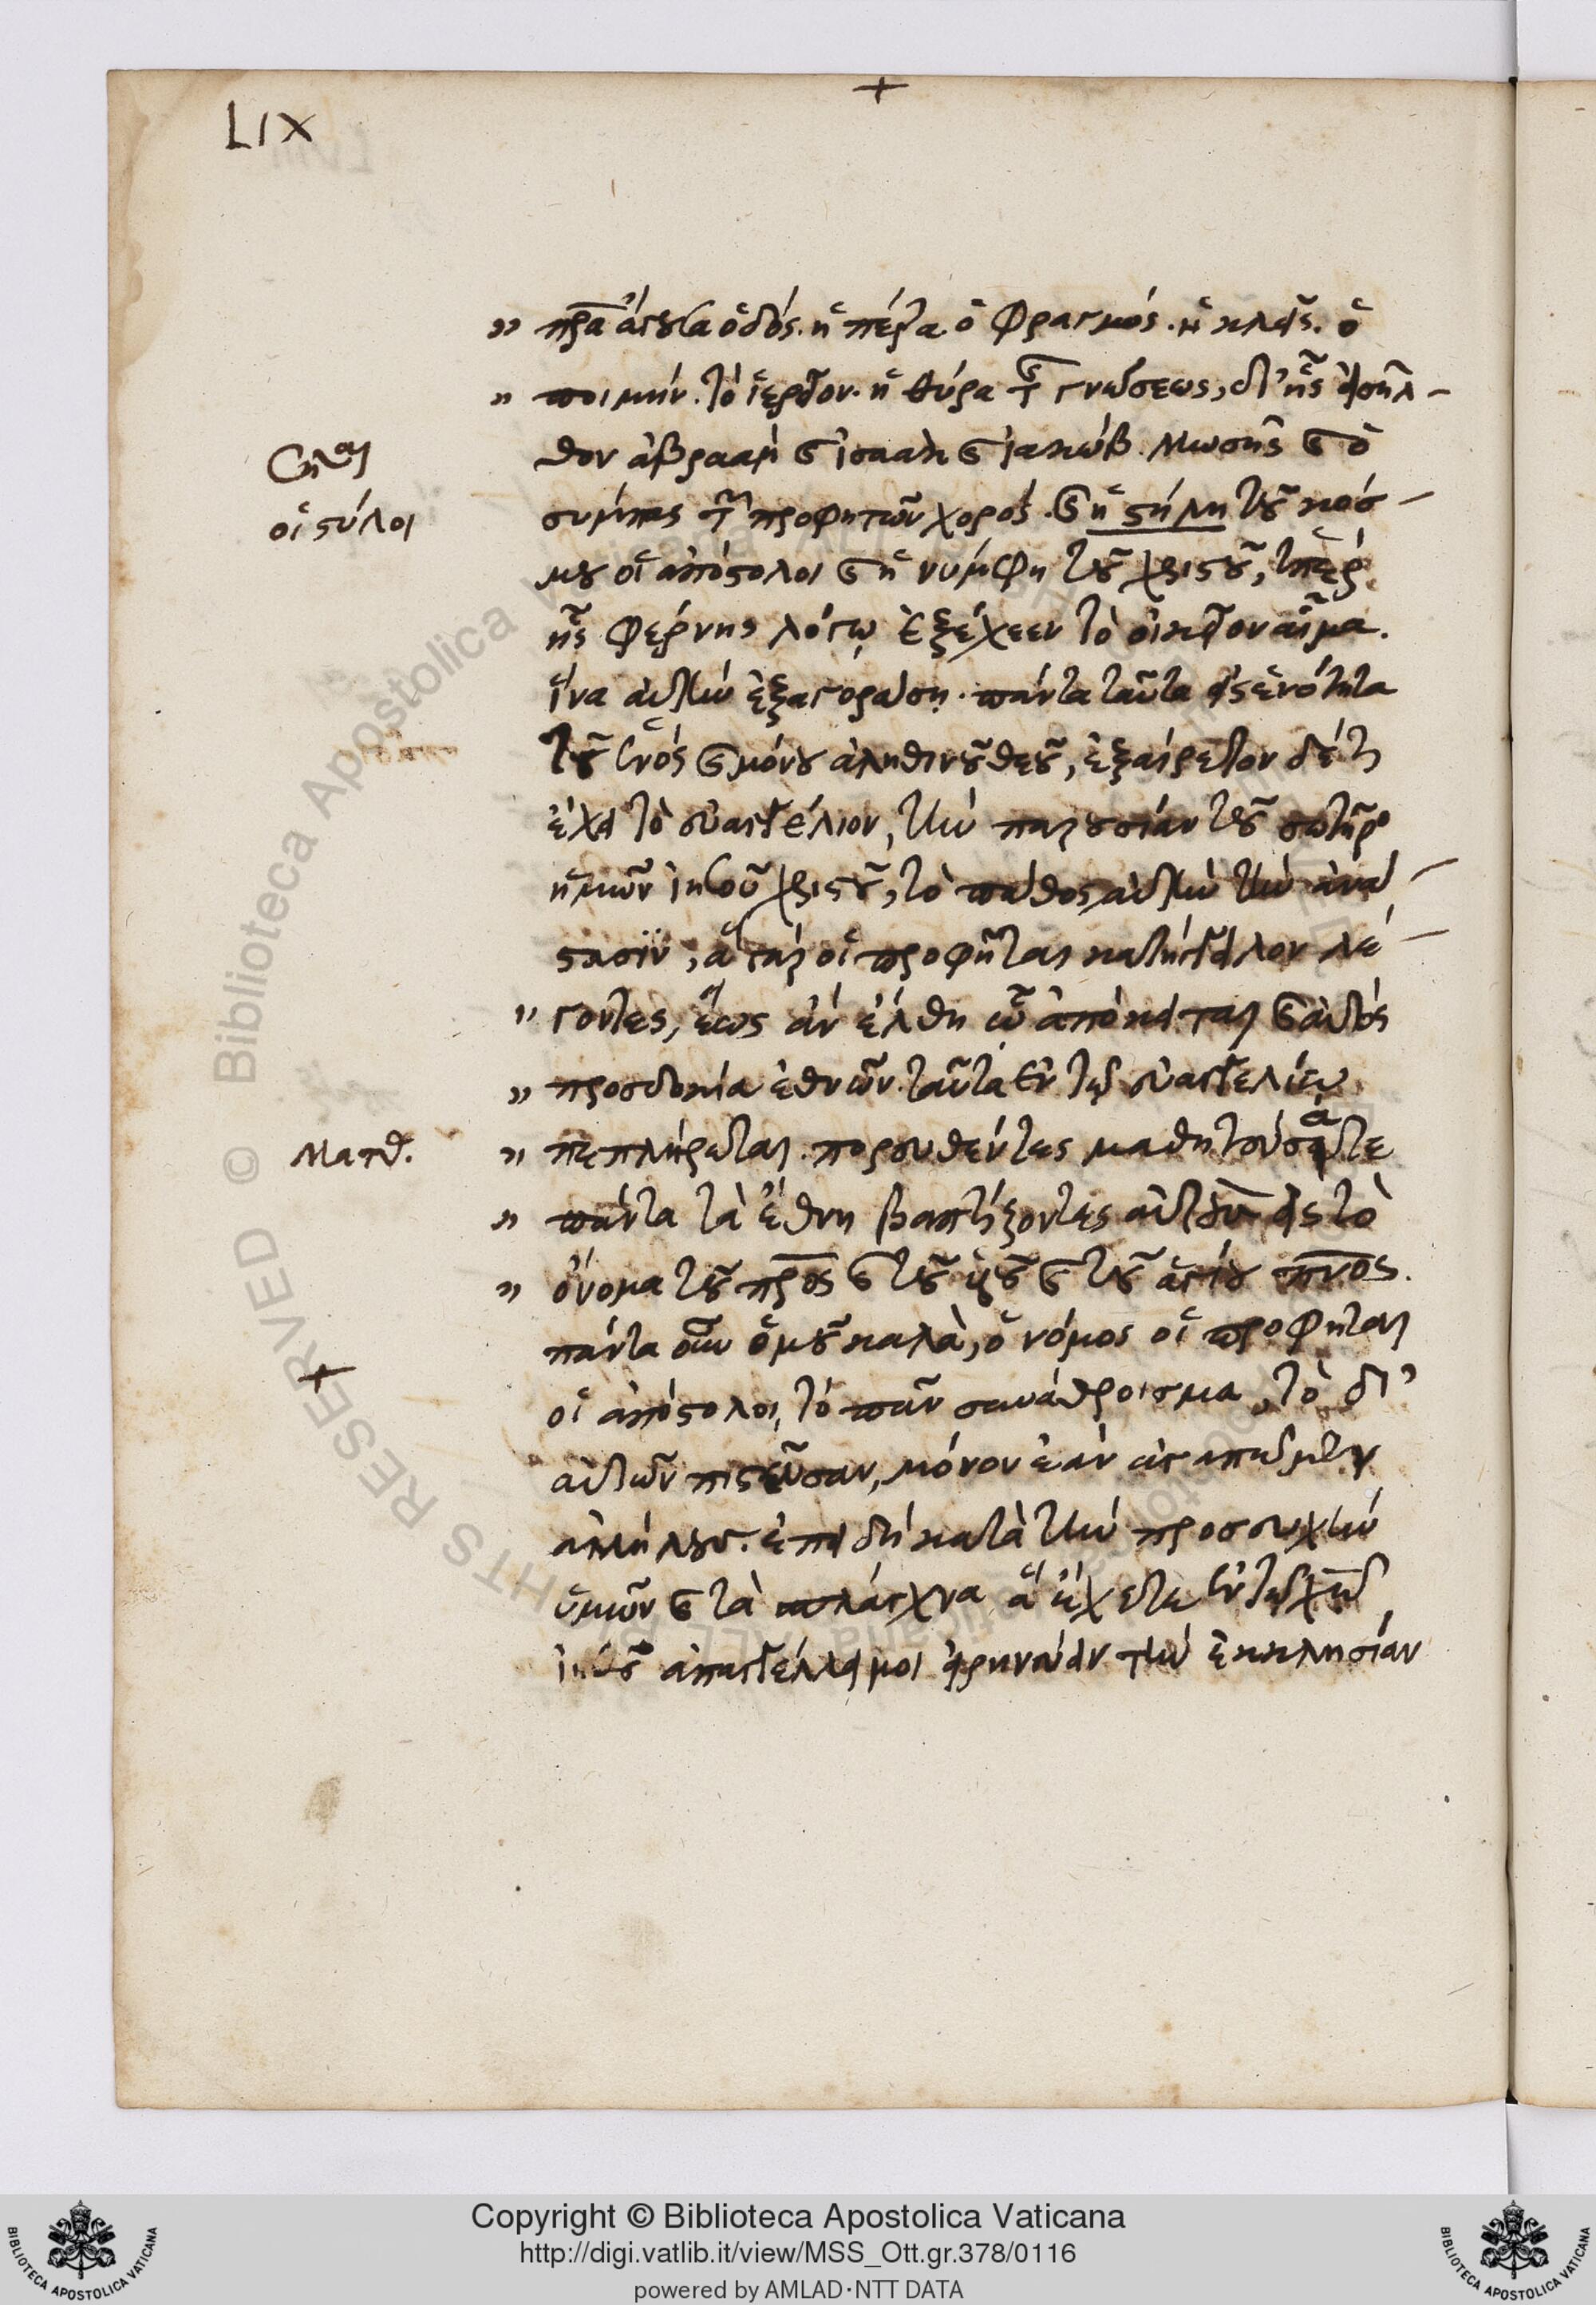 LIX
+
» πρ̅α̅ ἄγουσα ὁδός. ἡ πέτρα ὁ φραγμός. ἡ κλείς. ὁ
» ποιμήν. τὸ ἱερεῖον. ἡ θύρα τῆς γνώσεως, δι' ἧς εἰσῆλ-
θον ἀβραὰμ καὶ ἰσαὰκ καὶ ἰακώβ. Μωσῆς καὶ ὁ
σύμπας τῶν προφητῶν χορός. καὶ ἡ στήλη τοῦ κόσ-
στῆλαι
οἱ στύλοι
μου οἱ ἀπόστολοι καὶ ἡ νύμφη τοῦ χριστοῦ, ὑπὲρ
ἧς φερνῆς λόγῳ ἐξέχεεν τὸ οἰκεῖον αἷμα.
ἵνα αὐτὴν ἐξαγοράσῃ. πάντα ταῦτα εἰς ἑνότητα
τοῦ ἑνός καὶ μόνου ἀληθινοῦ θεοῦ, ἐξαίρετον δέ τι
ἔχει τὸ εὐαγγέλιον, τὴν παρουσίαν τοῦ σωτῆρο
ἡμῶν ἰησοῦ χριστοῦ, τὸ πάθος, αὐτὴν τὴν ἀνά-
στασιν, ἃ γὰρ οἱ προφῆται κατήγγειλον λέ-
" γοντες, ἕως ἂν ἔλθη ᾧ ἀπόκειται καὶ αὐτός
» προσδοκία ἐθνῶν. ταῦτα ἐν τῷ εὐαγγελίῳ
Ματθ.
» πεπλήρωται. πορευθέντες μαθητεύσατε
» πάντα τὰ ἔθνη βαπτίζοντες αὐτοὺς εἰς τὸ
» ὄνομα τοῦ πρ̅ο̅ς̅ καὶ τοῦ υἱοῦ καὶ τοῦ ἁγίου πν̅ο̅ς̅.
πάντα οὖν ὁμοῦ καλὰ, ὁ νόμος οἱ προφῆται
+
οἱ ἀπόστολοι, τὸ πᾶν συνάθροισμα, τὸ δι'
αὐτῶν πιστεῦσαν, μόνον ἐὰν ἀγαπῶμεν
ἀλλήλους. ἐπειδὴ κατὰ τὴν προσευχὴν
ὑμῶν καὶ τὰ σπλάγχνα ἃ ἔχετε ἐν τῷ χῶ
ἰησοῦ ἀπαγγέλλει μοι εἰρηνεύειν τὴν ἐκκλησίαν
© Biblioteca Apostolica Vaticana ALL RIGHTS RESERVED
Copyright © Biblioteca Apostolica Vaticana
http://digi.vatlib.it/view/MSS_Ott.gr.378/0116
powered by AMLAD·NTT DATA
BIBLIOTECA APOSTOLICA VATICANA
BIBLIOTECA APOSTOLICA VATICANA